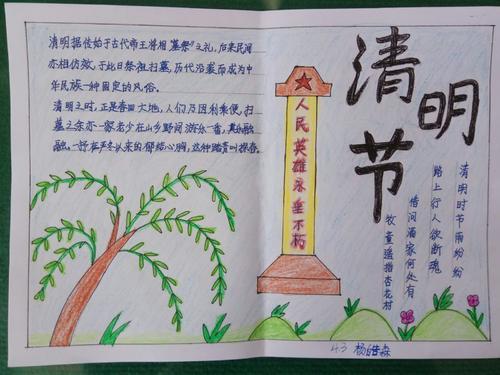 清明据传始于古代帝王将相"墓祭"之礼，后来民间
亦相仿效，于此日祭祖扫墓，历代沿袭而成为中
华民族一种固定的风俗。
清明之时，正是春回大地，人们乃因利乘便，扫
墓之余亦一家老少在山乡野间游乐一番，其乐融
融，一抒在严冬以来的郁结心胸，这种踏青叫探春。
人民英雄永垂不朽
清明节
清明时节雨纷纷
路上行人欲断魂
借问酒家何处有
牧童遥指杏花村
4.3 杨皓森